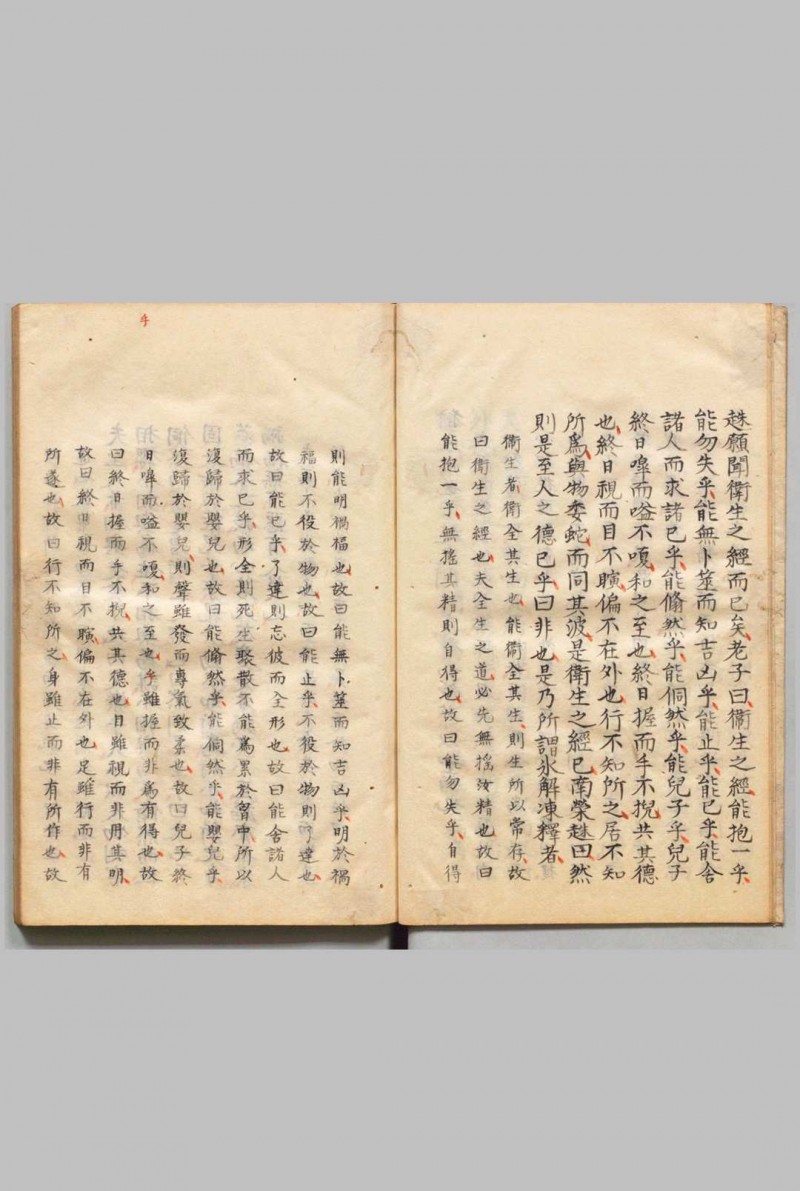 趎願聞衞生之經而已矣老子曰衞生之經能抱一乎
能勿失乎能無卜筮而知吉凶乎能止乎能已乎能舍
諸人而求諸已乎能翛然乎能侗然乎能兒子乎兒子
終日嘷而嗌不嗄和之至也終日握而手不掜共其德
也終日視而目不瞚偏不在外也行不知所之居不知
所爲與物委蛇而同其波是衞生之經已南榮趎曰然
則是至人之德已乎曰非也是乃所謂氷解凍釋者
衞生者衞全其生也能衞全其生則生所以常存故
曰衞生之經也夫全生之道必先無搖汝精也故曰
能抱一乎無搖其精則自得也故曰能勿失乎自得
則能明禍福也故曰能無卜筮而知吉凶乎明於禍
福則不役於物也故曰能止乎不役於物則了達也
故曰能已乎了達則忘彼而全形也故曰能舍諸人
而求已乎形全則死生聚散不能爲累於胷中所以
復歸於嬰兒也故曰能翛然乎能侗然乎能嬰兒乎
復歸於嬰兒則聲雖發而專氣致柔也故曰兒子終
日嘷而嗌不嗄和之至也手雖握而非爲有得也故
曰終日握而手不掜共其德也目雖視而非用其明
故曰終日視而目不瞚偏不在外也足雖行而非有
所遂也故曰行不知所之身雖止而非有所作也故